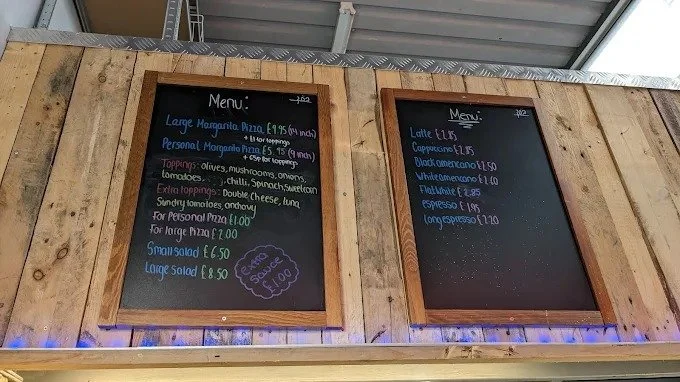 Menu:
Large Margarita Pizza £9.95 (14 inch)
+ £1 for toppings
Personal Margarita Pizza £5.95 (9 inch)
+ 65p for toppings
Toppings: olives, mushrooms, onions,
tomatoes, chilli, Spinach, sweetcorn
Extra toppings: Double cheese, tuna,
Sundry tomatoes, anchovy
For Personal Pizza £1.00
For large Pizza £2.00
Small salad £6.50
Large salad £8.50
Extra
Sauce
£1.00
Menu:
Latte £2.85
Cappuccino £2.85
Black americano £2.50
White americano £2.60
Flat White £2.85
espresso £1.95
Long espresso £2.20